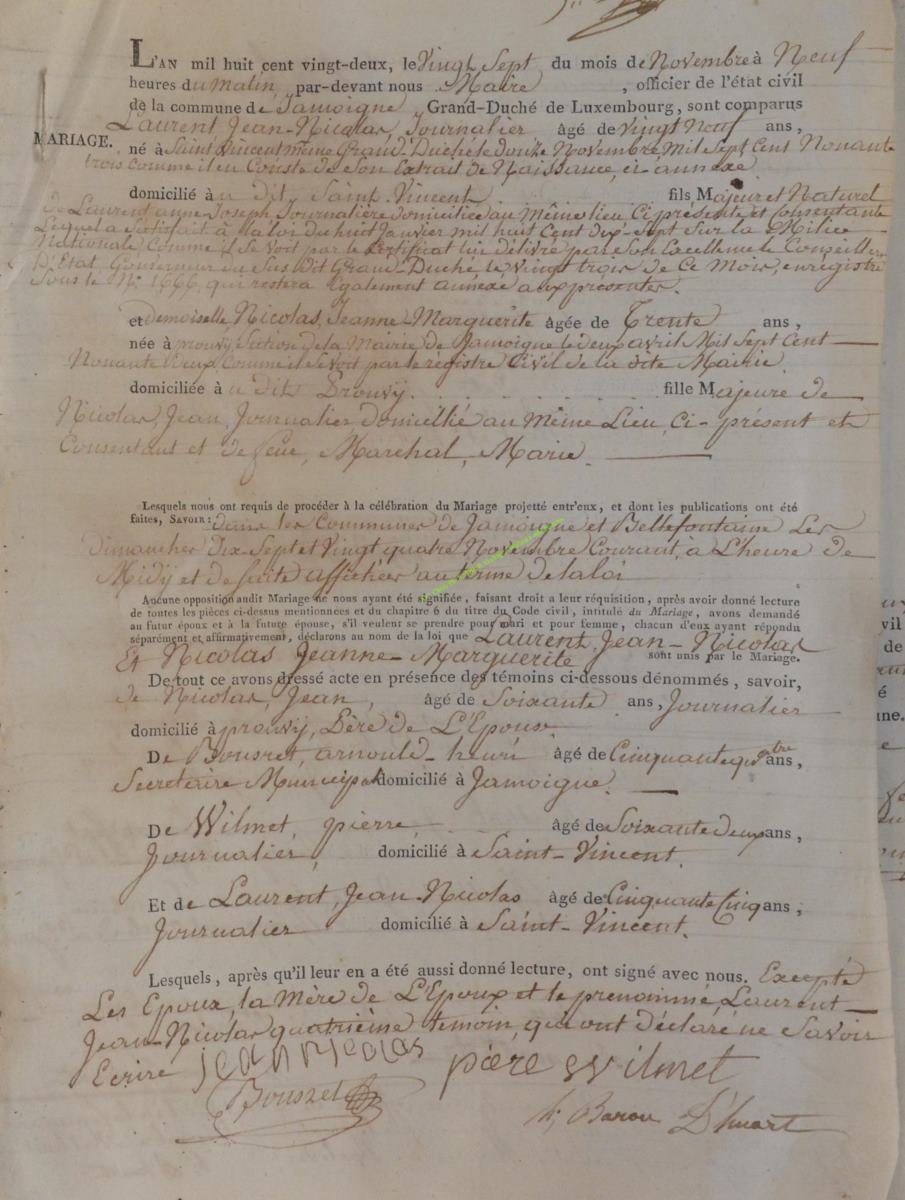 L'AN mil huit cent vingt-deux, le Vingt Sept du mois de Novembre à Neuf
heures du Matin, par-devant nous Maire , officier de l'état civil
de la commune de Jamoigne, Grand-Duché de Luxembourg, sont comparus
Laurent, Jean-Nicolas, Journalier âgé de Vingt Neuf ans,
MARIAGE.
né à Saint Vincent même Grand-Duché le douze Novembre Mil Sept Cent Nonante
trois comme il en Conste de son Extrait de Naissance, ci annexé
domicilié à u dit Saint Vincent fils Majeur et Naturel
de Laurent anne Joseph Journalière domiciliée au Même lieu Ci présente et Consentante
Lequel a Satisfait à la loi du huit Janvier mil huit Cent dix-Sept Sur la Milice
Nationale Comme il Se Voit par le Certificat lui délivré par Son Excellence le Conseiller
D'Etat, Gouverneur du Sus Dit Grand-Duché, le Vingt trois de Ce Mois, enregistré
Sous le N.º 1666, qui restera Egalement annexé aux présentes.
et demoiselle Nicolas, Jeanne-Marguerite âgée de Trente ans,
née à prouvÿ Section de la Mairie de Jamoigne le deux avril Mil Sept Cent
Nonante Deux, Comme il Se Voit par le registre Civil de la dite Mairie
domiciliée à u dit Prouvÿ . . . . . . . fille Majeure de
Nicolas, Jean, Journalier domicillié au Même Lieu, Ci-présent et
Consentant et de feue, Maréchal, Marie.
Lesquels nous ont requis de procéder à la célébration du Mariage projetté entr'eux, et dont les publications ont été
faites, SAVOIR: Dans les Communes de Jamoigne et Bellefontaine Les
Dimanches Dix-Sept et Vingt quatre Novembre Courant, à L'heure de
Midÿ et de Suite affichées au terme de la loi
Aucune opposition audit Mariage ne nous ayant été signifiée, faisant droit a leur réquisition, après avoir donné lecture
de toutes les pièces ci-dessus mentionnées et du chapitre 6 du titre du Code civil, intitulé du Mariage, avons demandé
au futur époux et à la future épouse, s'il veulent se prendre pour mari et pour femme, chacun d'eux ayant répondu
séparément et affirmativement, déclarons au nom de la loi que Laurent, Jean-Nicolas
Et Nicolas Jeanne-Marguerite sont unis par le Mariage.
De tout ce avons dressé acte en présence des témoins ci-dessous dénommés, savoir,
de Nicolas, Jean, âgé de Soixante ans, Journalier
domicilié à prouvÿ, Père de L'Epouse.
De Bousret, arnould-henri âgé de Cinquante quatre ans,
Secretaire Municipal domicilié à Jamoigne.
De Wilmet, pierre, âgé de Soixante deux ans,
Journalier, domicilié à Saint-Vincent.
Et de Laurent, Jean-Nicolas âgé de Cinquante Cinq ans,
Journalier domicilié à Saint-Vincent.
Lesquels, après qu'il leur en a été aussi donné lecture, ont signé avec nous. Excepté
Les Epoux, la Mère de L'Epoux et le prénommé, Laurent
Jean-Nicolas quatrième témoin, qui ont déclaré ne Savoir
Ecrire jean nicolas
piere wilmet
Bousret
Baron D'huart